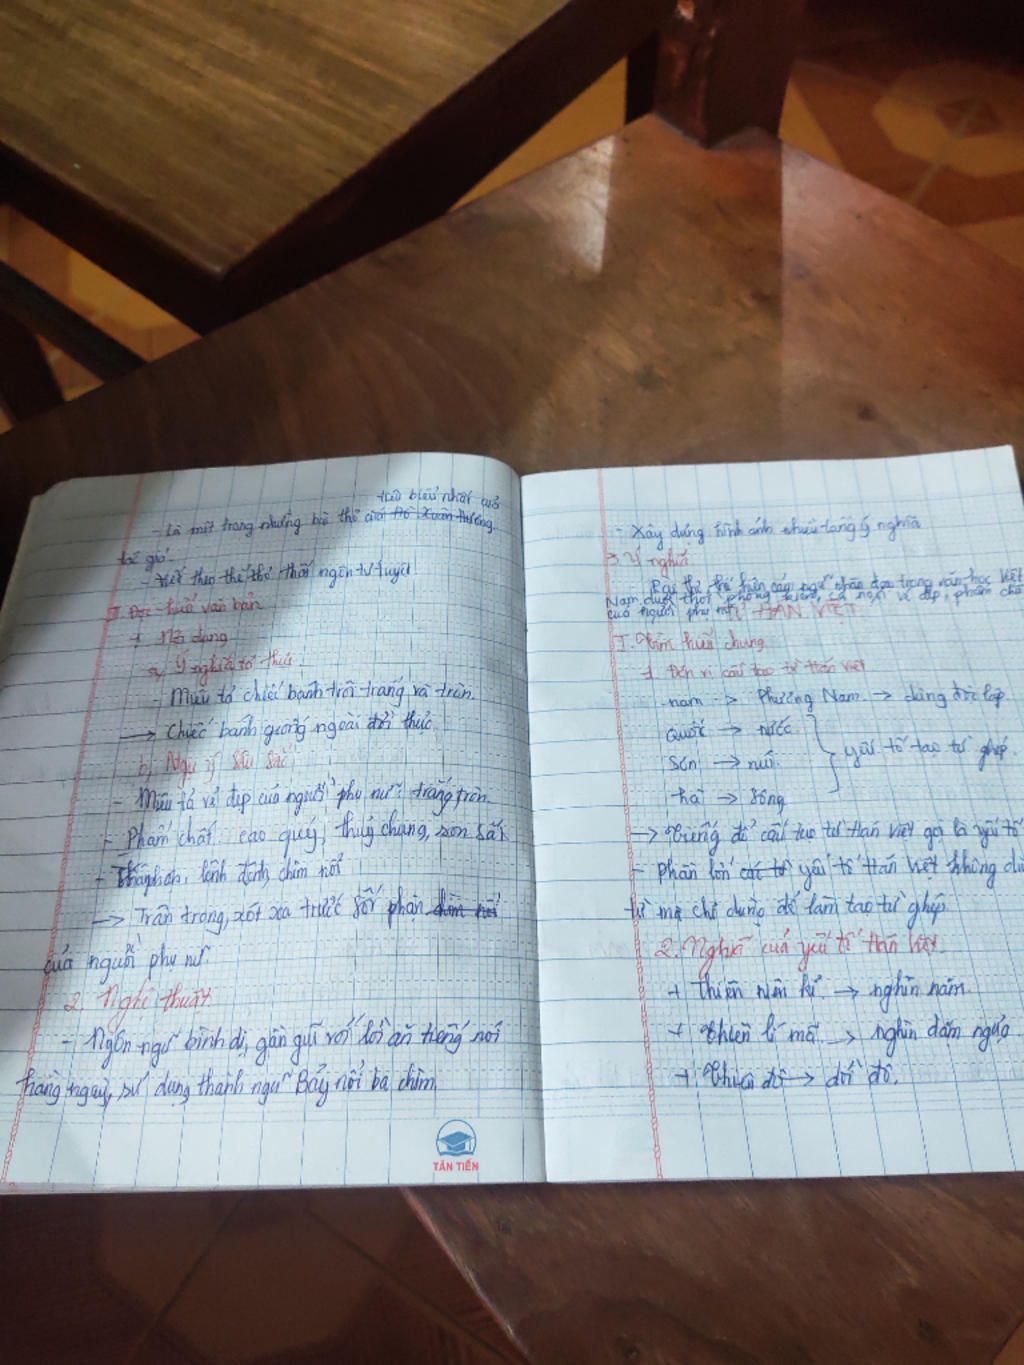 tiêu biểu nhất của
- Là một trong những bài thơ của Hồ Xuân Hương
tác giả
- Viết theo thể thơ thất ngôn tứ tuyệt
II. Đọc-hiểu văn bản
1. Nội dung
a, Ý nghĩa tả thực.
- Miêu tả chiếc bánh trôi trắng và tròn.
→ Chiếc bánh giống ngoài đời thực.
b, Ngụ ý sâu sắc
- Miêu tả vẻ đẹp của người phụ nữ: trắng, tròn.
- Phẩm chất: cao quý, thuỷ chung, son sắt
- lênh đênh, chìm nổi
→ Trân trọng, xót xa trước số phận chìm nổi
của người phụ nữ.
2. Nghệ thuật
- Ngôn ngữ bình dị, gần gũi với lời ăn tiếng nói
hàng ngày, sử dụng thành ngữ Bảy nổi ba chìm.
TÂN TIẾN
- Xây dựng hình ảnh nhiều tầng ý nghĩa
3. Ý nghĩa
Bài thơ thể hiện cảm nhân đạo trong văn học Việt
Nam dưới thời phong kiến, ca ngợi vẻ đẹp, phẩm chấ
của người phụ nữ
TỪ HÁN VIỆT
I. Tìm hiểu chung
1. Đơn vị cấu tạo từ Hán Việt
nam → Phương Nam → dùng độc lập
quốc → nước
sơn → núi.
yếu tố tạo từ ghép.
hà → sông
→ Tiếng để cấu tạo từ Hán Việt gọi là yếu tố
- Phần lớn các từ yếu tố Hán Việt không dù
từ mà chỉ dùng để làm tạo từ ghép
2. Nghĩa của yếu tố Hán Việt.
+ Thiên niên kỉ → nghìn năm.
+ Thiên lí mã → nghìn dặm ngựa
+ Thiên đô → dời đô.